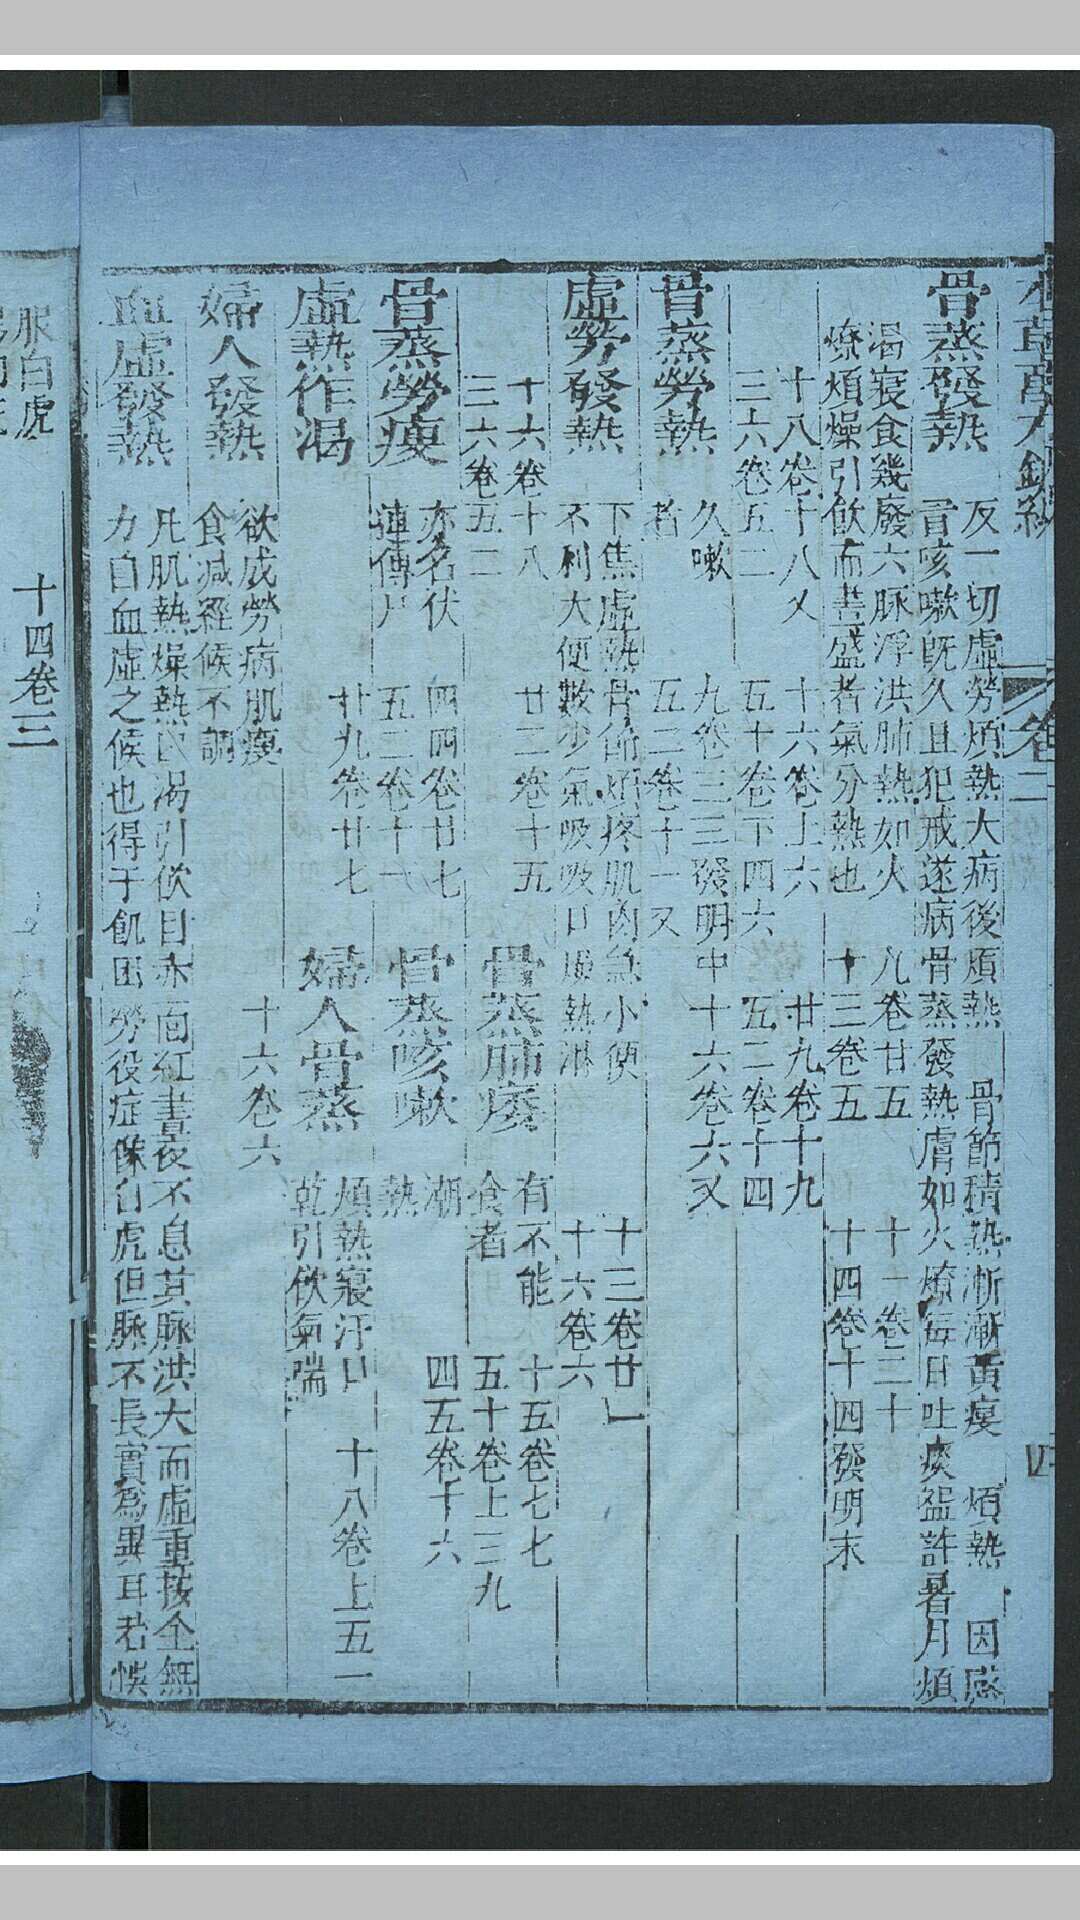 本草萬方鍼線 卷二 四
骨蒸發熱
反一切虛勞煩熱大病後煩熱 骨節積熱漸漸黃瘦 煩熱 因感
冒咳嗽旣久且犯戒遂病骨蒸發熱膚如火燎每日吐痰盌許暑月煩
渴寢食幾廢六脉浮洪肺熱如火 九卷廿五 十一卷二十
燎煩燥引飲而晝盛者氣分熱也 十三卷五 十四卷十四發明末
十八卷十八又 十六卷上六 廿九卷十九
三六卷五二 五十卷下四六 五二卷十四
骨蒸勞熱
久嗽 九卷三三發明中 十六卷六又
者 五二卷十一又
虛勞發熱
下焦虛熱骨節煩疼肌肉急小便 十三卷廿一
不利大便數少氣吸吸口燥熱淋 十六卷六
十六卷十八 廿二卷十五
三六卷五二
骨蒸肺痿
有不能 十五卷七七
食者 五十卷上三九
骨蒸勞瘦
亦名伏 四四卷廿七
連傳尸 五二卷十一
骨蒸咳嗽
潮 四五卷十六
熱
虛熱作渴
廿九卷廿七
婦人骨蒸
煩熱寢汗口 十八卷上五一
乾引飲氣喘
婦人發熱
欲成勞病肌瘦 十六卷六
食減經候不調
血虛發熱
凡肌熱燥熱困渴引飲目赤面紅晝夜不息其脉洪大而虛重按全無
力自血虛之候也得于飢困勞役症像白虎但脉不長實爲異耳若悞
服白虎
十四卷三